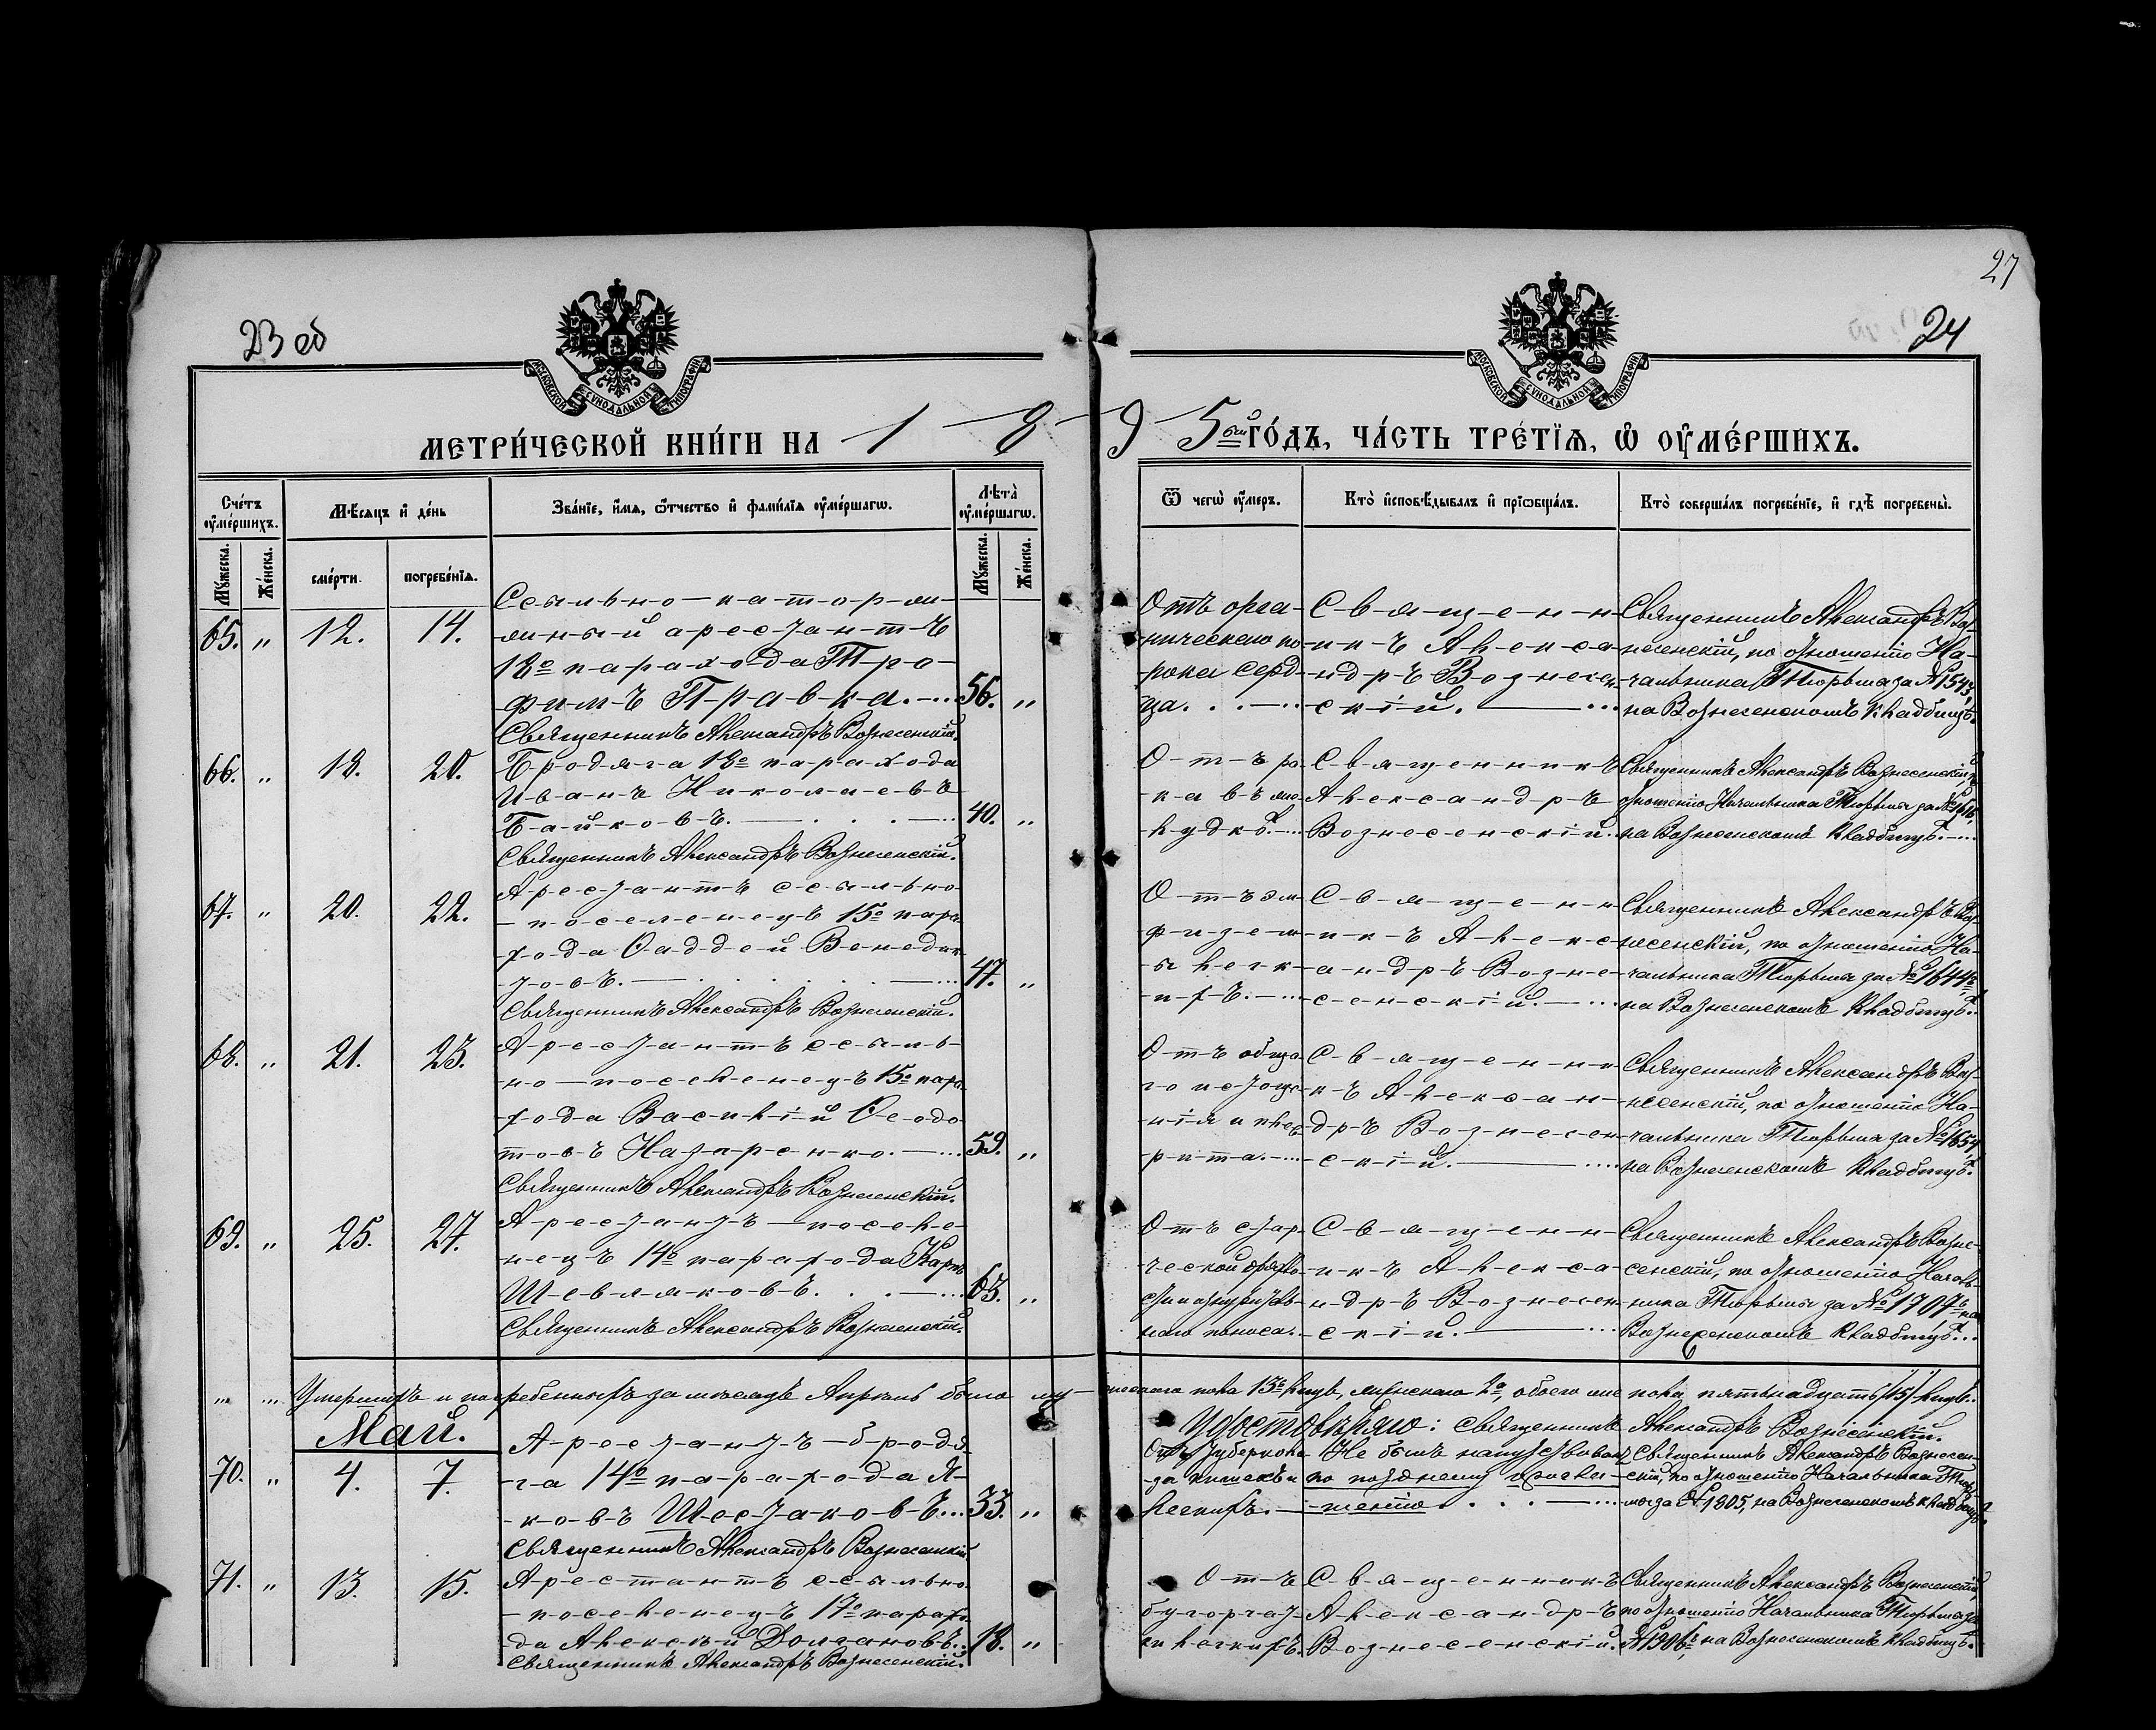 27
23 об
24
МОСКОВСКОЙ СѴНОДАЛЬНОЙ ТИПОГРАФІИ
МОСКОВСКОЙ СѴНОДАЛЬНОЙ ТИПОГРАФІИ
МЕТРИ́ЧЕСКОЙ КНИ́ГИ НА 1895ый ГО́ДЪ, ЧА́СТЬ ТРЕ́ТІѦ, Ѡ ОУ҆МЕ́РШИХЪ.
Сче́тъ оу҆ме́ршихъ.
Мꙋжеска.
Же́нска.
Мѣсяцъ и де́нь
сме́рти.
погребе́нїѧ.
Зва́нїе, и҆́мѧ, ѻ҆́тчество и҆ фами́лїѧ оу҆ме́ршагѡ.
Лѣта̀ оу҆ме́ршагѡ.
Мꙋжеска.
Же́нска.
Ѿ чегѡ̀ оу҆́меръ.
Кто̀ и҆сповѣ́дывалъ и҆ прїѡбща́лъ.
Кто̀ соверша́лъ погребе́нїе, и҆ гдѣ̀ погребены̀.
65. „ 12. 14.
Ссыльно-каторж-
ный арестантъ
18о парахода Тро-
фимъ Правка. 56. „
Священникъ Александръ Вознесенскій.
Отъ орга-
ническаго по-
рока серд-
ца.
Священн-
икъ Алекса-
ндръ Вознесен-
скій.
Священникъ Александръ Воз-
несенскій, по отношенію На-
чальника Тюрьмы за № 1543,
на Вознесенскомъ кладбищѣ.
66. „ 18. 20.
Бродяга 18о парахода
Иванъ Николаевъ
Байковъ. 40. „
Священникъ Александръ Вознесенскій.
Отъ ра-
ка въ же-
лудкѣ.
Священникъ
Александръ
Вознесенскій.
Священникъ Александръ Вознесенскій, по
отношенію Начальника Тюрьмы за № 1616,
на Вознесенскомъ кладбищѣ.
67. „ 20. 22.
Арестантъ ссыльно-
-поселенецъ 15о пара-
хода Ѳаддей Бенедик-
товъ. 47. „
Священникъ Александръ Вознесенскій.
Отъ эм-
физем-
ы легк-
ихъ.
Священн-
икъ Алекс-
андръ Возне-
сенскій.
Священникъ Александръ Воз-
несенскій, по отношенію На-
чальника Тюрьмы за № 1644,
на Вознесенскомъ кладбищѣ.
68. „ 21. 23.
Арестантъ ссыль-
но-поселенецъ 15о пара-
хода Василій Ѳеодо-
товъ Назаренко. 59. „
Священникъ Александръ Вознесенскій.
Отъ обща-
го истоще-
нія и плев-
рита.
Священни-
къ Алексан-
дръ Вознесен-
скій.
Священникъ Александръ Воз-
несенскій, по отношенію На-
чальника Тюрьмы за № 1654,
на Вознесенскомъ кладбищѣ.
69. „ 25. 27.
Арестантъ-поселе-
нецъ 14о парахода Карпъ
Шевляковъ. 63. „
Священникъ Александръ Вознесенскій.
Отъ стар-
ческой дряхло-
сти и изнурител-
наго поноса.
Священн-
икъ Алекса-
ндръ Вознесен-
скій.
Священникъ Александръ Возне-
сенскій, по отношенію Началь-
ника Тюрьмы за № 1707, на
Вознесенскомъ кладбищѣ.
Умершихъ и погребенныхъ за мѣсяцъ Апрѣль было мужескаго пола 13ть лицъ, женскаго 2а, обоего же пола пятьнадцать /15/ лицъ.
Удостовѣряю: Священникъ Александръ Вознесенскій.
Май.
70. „ 4. 7.
Арестантъ-бродя-
га 14о парахода Я-
ковъ Шестаковъ. 33. „
Священникъ Александръ Вознесенскій.
Отъ туберкуле-
за кишекъ и
легкихъ.
Не былъ напутствованъ
по позднему пригла-
шенію.
Священникъ Александръ Вознесен-
скій, по отношенію Начальника Тюрь-
мы за № 1805, на Вознесенскомъ кладбищѣ.
71. „ 13. 15.
Арестантъ ссыльно-
-поселенецъ 17о парахо-
да Алексѣй Долгановъ. 18. „
Священникъ Александръ Вознесенскій.
Отъ
бугорчат-
ки легкихъ.
Священникъ
Александръ
Вознесенскій.
Священникъ Александръ Вознесенскій,
по отношенію Начальника Тюрьмы за
№ 1906, на Вознесенскомъ кладбищѣ.